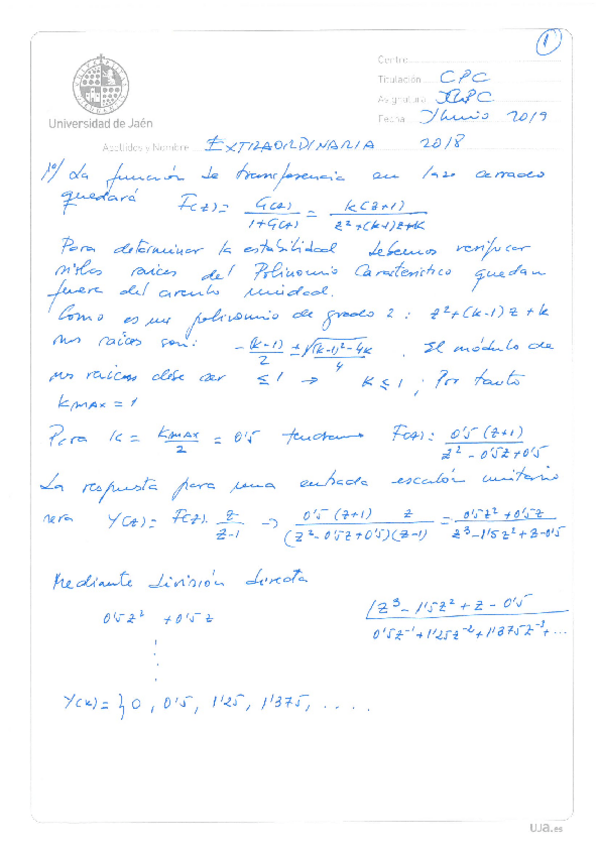 1
Centro
Titulación CPC
Universidad de Jaén
Asignatura
Fecha Junio 2019
Apellidos y Nombre EXTRAORDINARIA 2018
1º) La función de transferencia en lazo cerrado
quedará F(z) = G(z)/(1+G(z)) = k(z+1)/(z²+(k-1)z+k)
Para determinar la estabilidad debemos verificar
si las raices del Polinomio Caracteristico quedan
fuera del circulo unidad.
Como es un polinomio de grado 2: z²+(k-1)z+k
sus raices son: -(k-1)/2 ± √((k-1)²-4k)/4 . El módulo de
sus raices debe ser ≤ 1 → k ≤ 1 ; Por tanto
kmax = 1
Para k = kmax/2 = 0'5 tendremos F(z): 0'5(z+1)/(z²-0'5z+0'5)
La respuesta para una entrada escalón unitario
sera Y(z) = F(z)·z/(z-1) → 0'5(z+1) z/((z²-0'5z+0'5)(z-1)) = (0'5z²+0'5z)/(z³-1'5z²+z-0'5)
Mediante división directa
0'5z² +0'5z (z³-1'5z²+z-0'5
0'5z⁻¹+1'25z⁻²+1'375z⁻³+...
Y(k) = } 0, 0'5, 1'25, 1'375, ....
uja.es